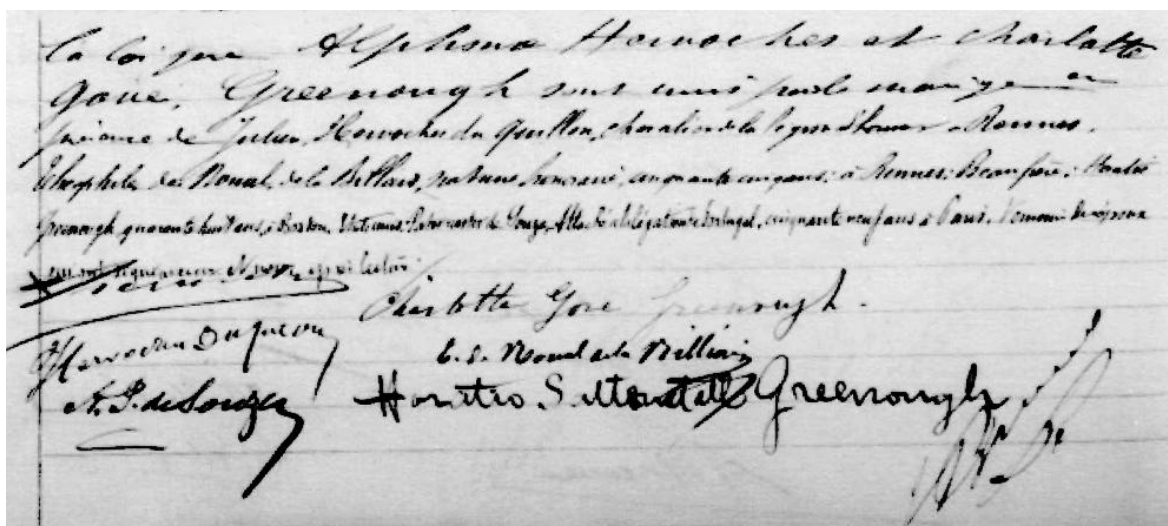 la loi que Alphonse Hervoches et Charlotte
Gore, Greenough sont unis par le mariage en
présence de Julien, Hervoches du Quillou, chevalier de la légion d'honneur à Rennes,
Théophile de Noual, de la Billiais, cinquante cinq ans, à Rennes, Beaufrère; Horatio
Greenough quarante huit ans, à Boston, Etats unis, de Souza, Attaché à la légation de Portugal, cinquante neuf ans à Paris. Témoins des époux
qui ont signé avec Nous, après lecture
Charlotte Gore Greenough.
T. de Noual de la Billiais
A. P. de Souza
Horatio. Saltonstall Greenough